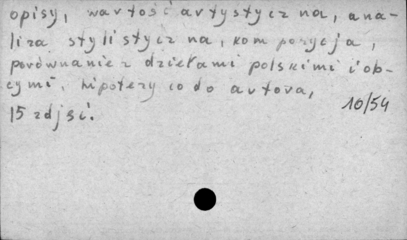 opisy, wartość artystyczna, ana-
liza stylistyczna, kompozycja,
porównanie z dziełami polskimi i ob-
cymi, hipotezy co do autora,
15 zdjęć.
10/54